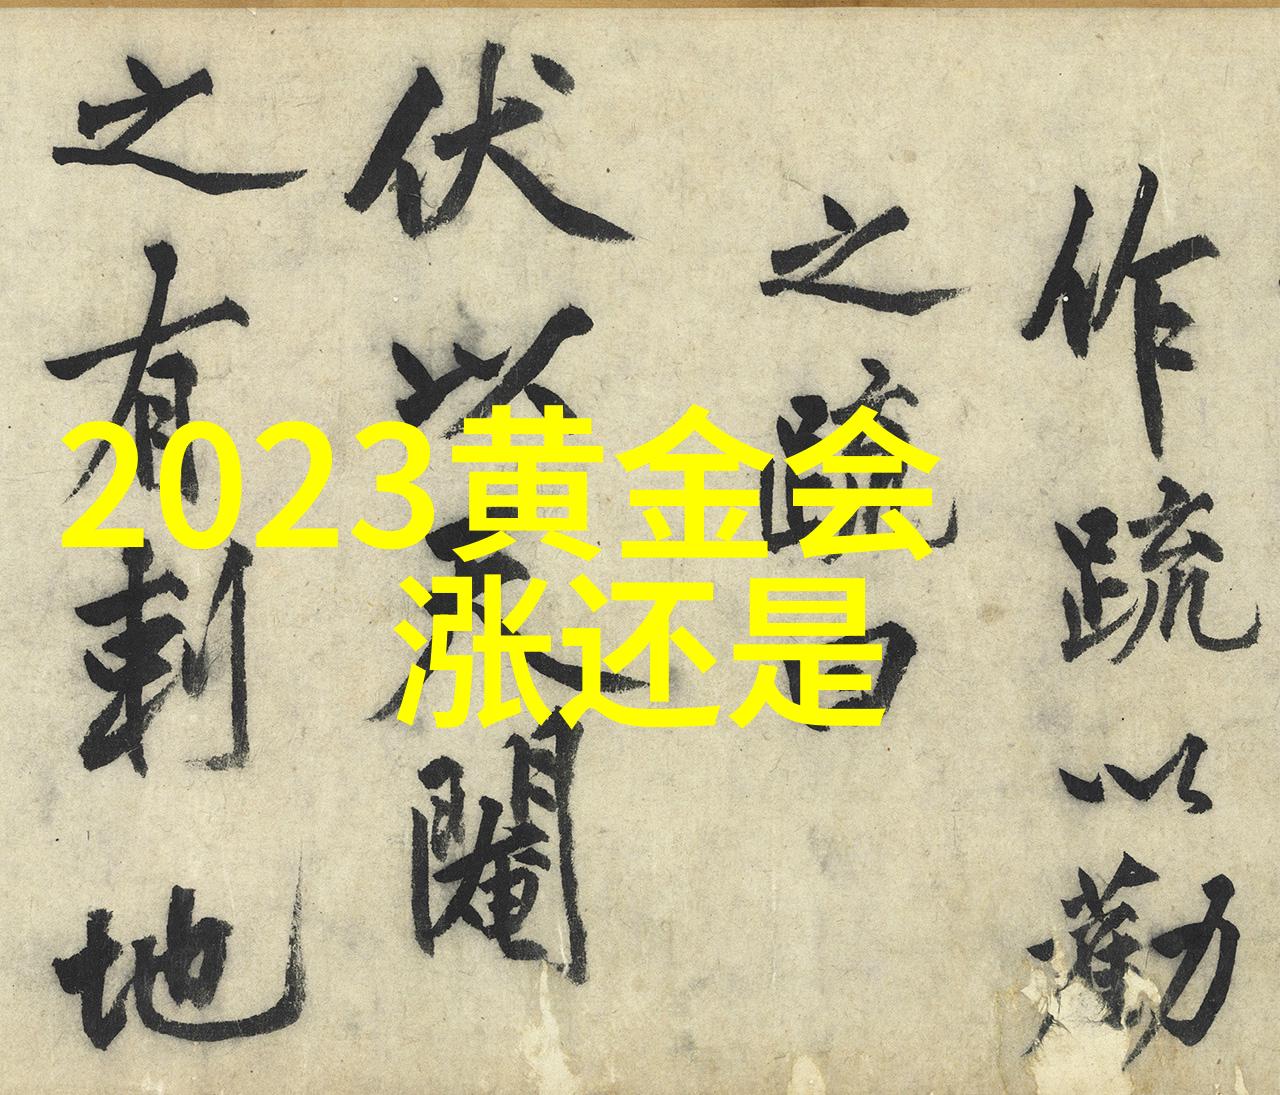 作疏以勸
之疏曰
伏以
閹
之有刺地
2023黄金会
涨还是